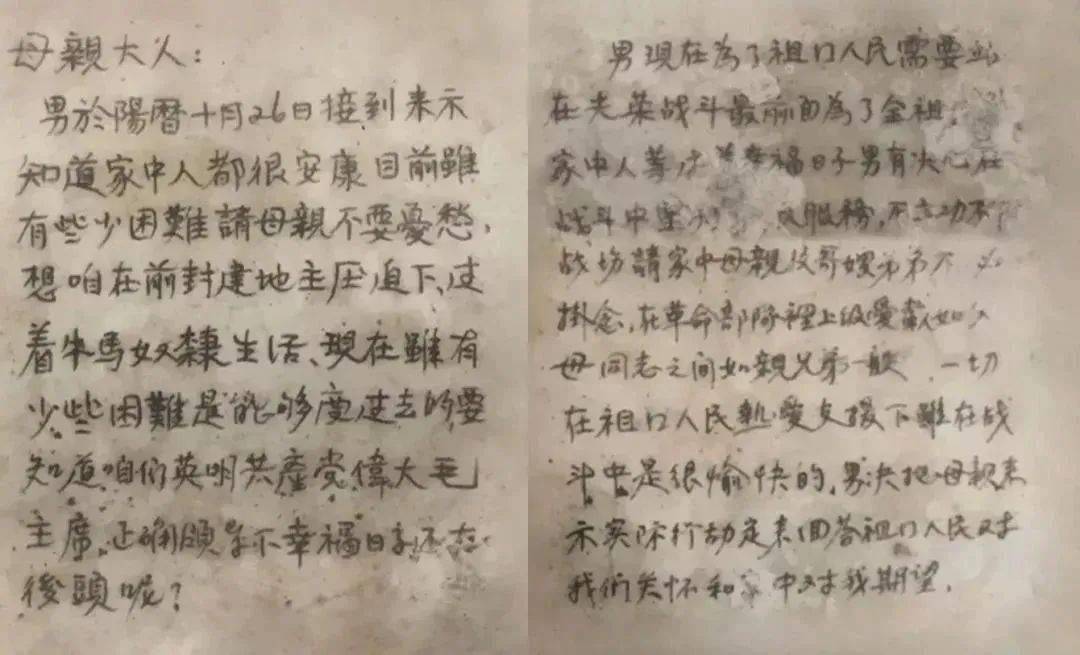 母親大人：
男於陽曆十月26日接到来示
知道家中人都很安康目前雖
有些少困難請母親不要憂愁，
想咱在前封建地主压迫下、过
着牛馬奴隸生活、現在雖有
少些困難是能够度过去的要
知道咱们英明共產党偉大毛
主席、正确領导下幸福日子还在
後頭呢？
男現在為了祖口人民需要站
在光荣战斗最前面為了全祖
家中人等 幸福日子男有决心在
战斗中 服務，不立功不下
战场請家中母親及哥嫂弟弟不必
掛念，在革命部隊裡上級愛戴如父
母同志之间如親兄弟一般 一切
在祖口人民熱愛支援下雖在战
斗中是很愉快的，男决把母親来
示实际行动定来回答祖口人民对
我们关怀和家中对我期望．